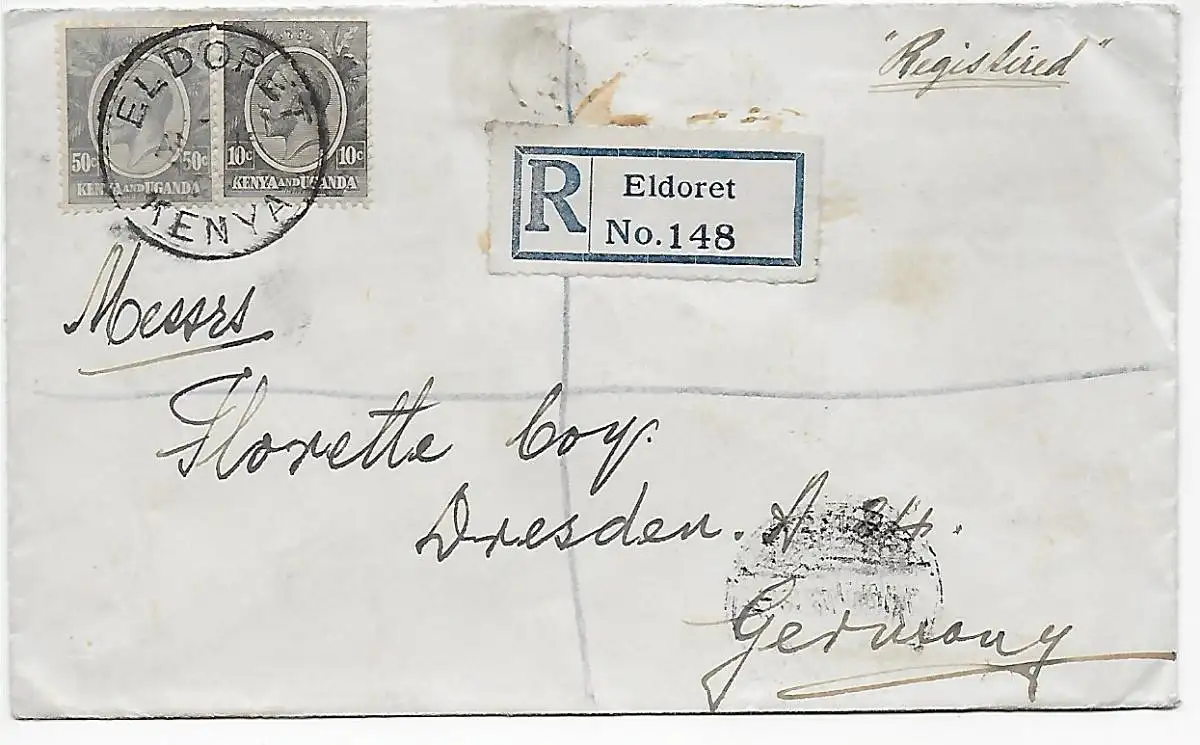 "Registered"
ELDORET
KENYA
50c 50c
KENYA AND UGANDA
10c 10c
KENYA AND UGANDA
R
Eldoret
No. 148
Messrs
Florette Coy.
Dresden. A 24.
Germany